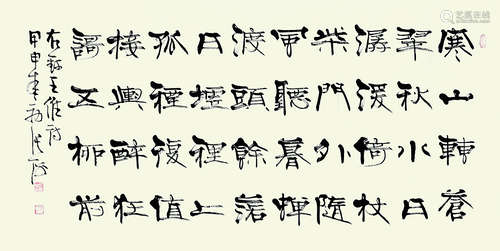 寒山轉蒼
翠秋水日
潺湲倚杖
柴門外隨
風聽暮蟬
渡頭餘落
日墟裡上
孤煙復值
接輿醉狂
謌五柳前
右錄王維詩
甲申春初張
艺狐在线